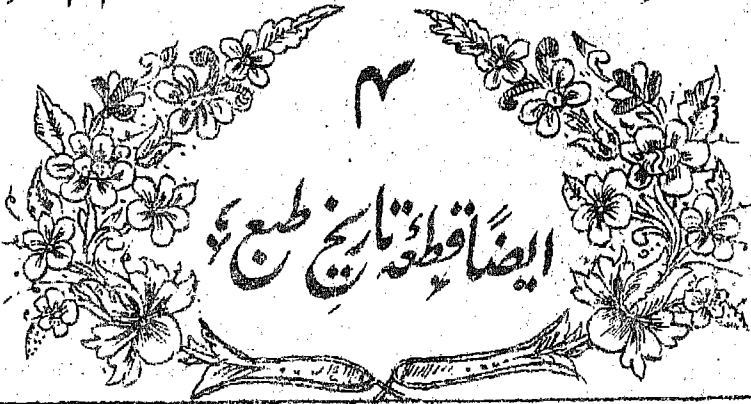 ۴
ایضاً قطعۂ تاریخ طبع